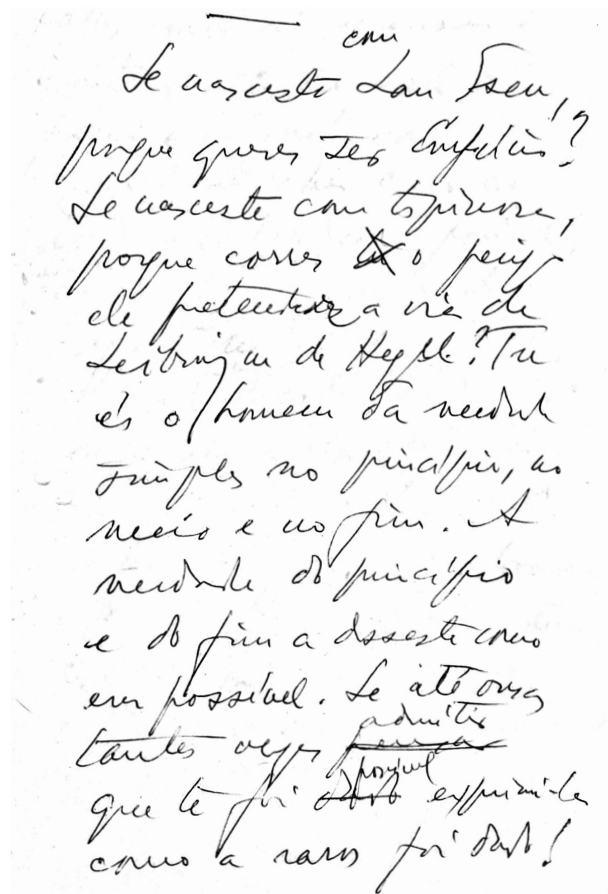 com
Se nasceste Lau Tseu,
porque queres ser Confúcio?
Se nasceste com Espinosa,
porque corres o perigo
de pretender a via de
Leibniz ou de Hegel? Tu
és o homem da verdade
simples no princípio, no
meio e no fim. A
verdade do princípio
e do fim a disseste como
era possível. Se até ousas
tantas vezes admitir
possível
que te foi dado exprimi-la
como a raros foi dado!